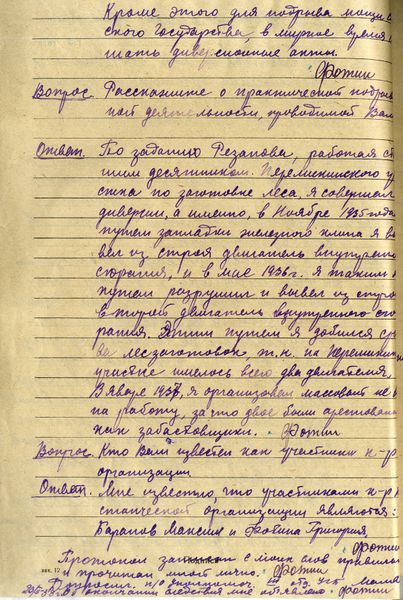 Кроме этого для подрыва мощи с
ского государства, в мирное время
шать диверсионные акты.
Фотин
Вопрос. Расскажите о практической подрыв
ной деятельности, проводимой Вам
Ответ. По заданию Резапова, работая ст
шим десятником
стка по заготовке леса, я совершал
диверсии, а именно, в Ноябре 1935 года
путем закладки железного клина я вы
вел из строя двигатель внутреннего
сгорания, и в мае 1936 г. я таким
путем разрушил и вывел из строя
второй двигатель внутреннего сго
рания. Этим путем я добился сры
ва лесзаготовок, т.к. на
участке имелось всего два двигателя.
В январе 1937, я организовал массовый не
на работу, за что двое были арестованы
как забастовщики. Фотин
Вопрос. Кто Вам известен как участники к-р
организации
Ответ. Мне известно, что участниками к-р
станческой организации являются:
Баранов Максим и Григорий
Фотин
Протокол с моих слов правильно
и прочитан мною лично. Фотин
зак. 12
Допросил.
Об окончании следствия мне объявлено. Фотин